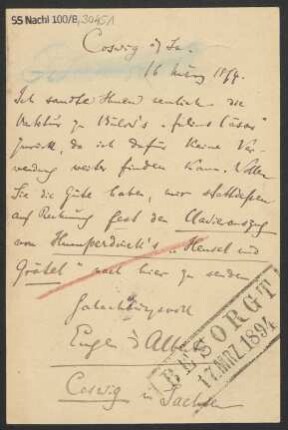 SS Nachl 100/B, 30451
Coswig i/Sa.
16 März 1894.
Ich sandte Ihnen neulich die
Partitur zu Bülow's „Julius Cäsar"
zurück, da ich dafür keine Ver-
wendung weiter finden kann. Wollen
Sie die Güte haben, mir stattdessen
auf Rechnung fest den Clavierauszug
von Humperdinck's „Hänsel und
Gretel" nach hier zu senden
Hochachtungsvoll
Eugen d'Albert
Coswig in Sachsen
BESORGT
17. MRZ. 1894